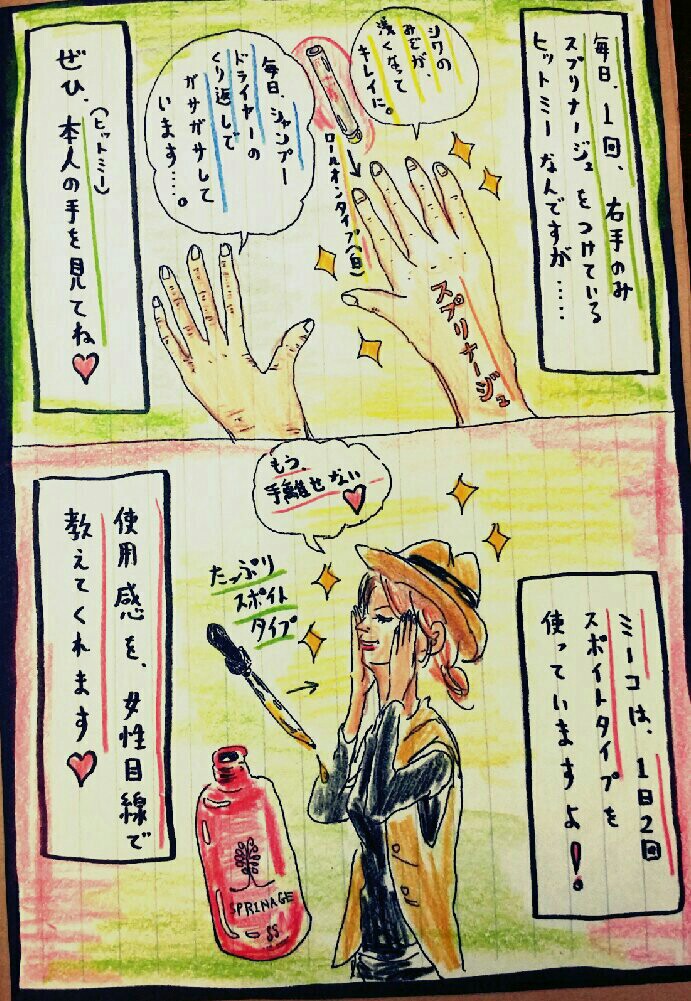 毎日、1回、右手のみ
スプリナージュをつけている
ヒットミーなんですが……
シワの
みぞが、
浅くなって
キレイに。
ロールオンタイプ(白)
スプリナージュ
毎日、シャンプー
ドライヤーの
くり返しで
ガサガサして
います…。
ぜひ、本人の手を見てね♥
(ヒットミー)
もう、
手離せない♥
たっぷり
スポイト
タイプ
ミーコは、1日2回
スポイトタイプを
使っていますよ!。
SPRINAGE
SS
使用感を、女性目線で
教えてくれます♥